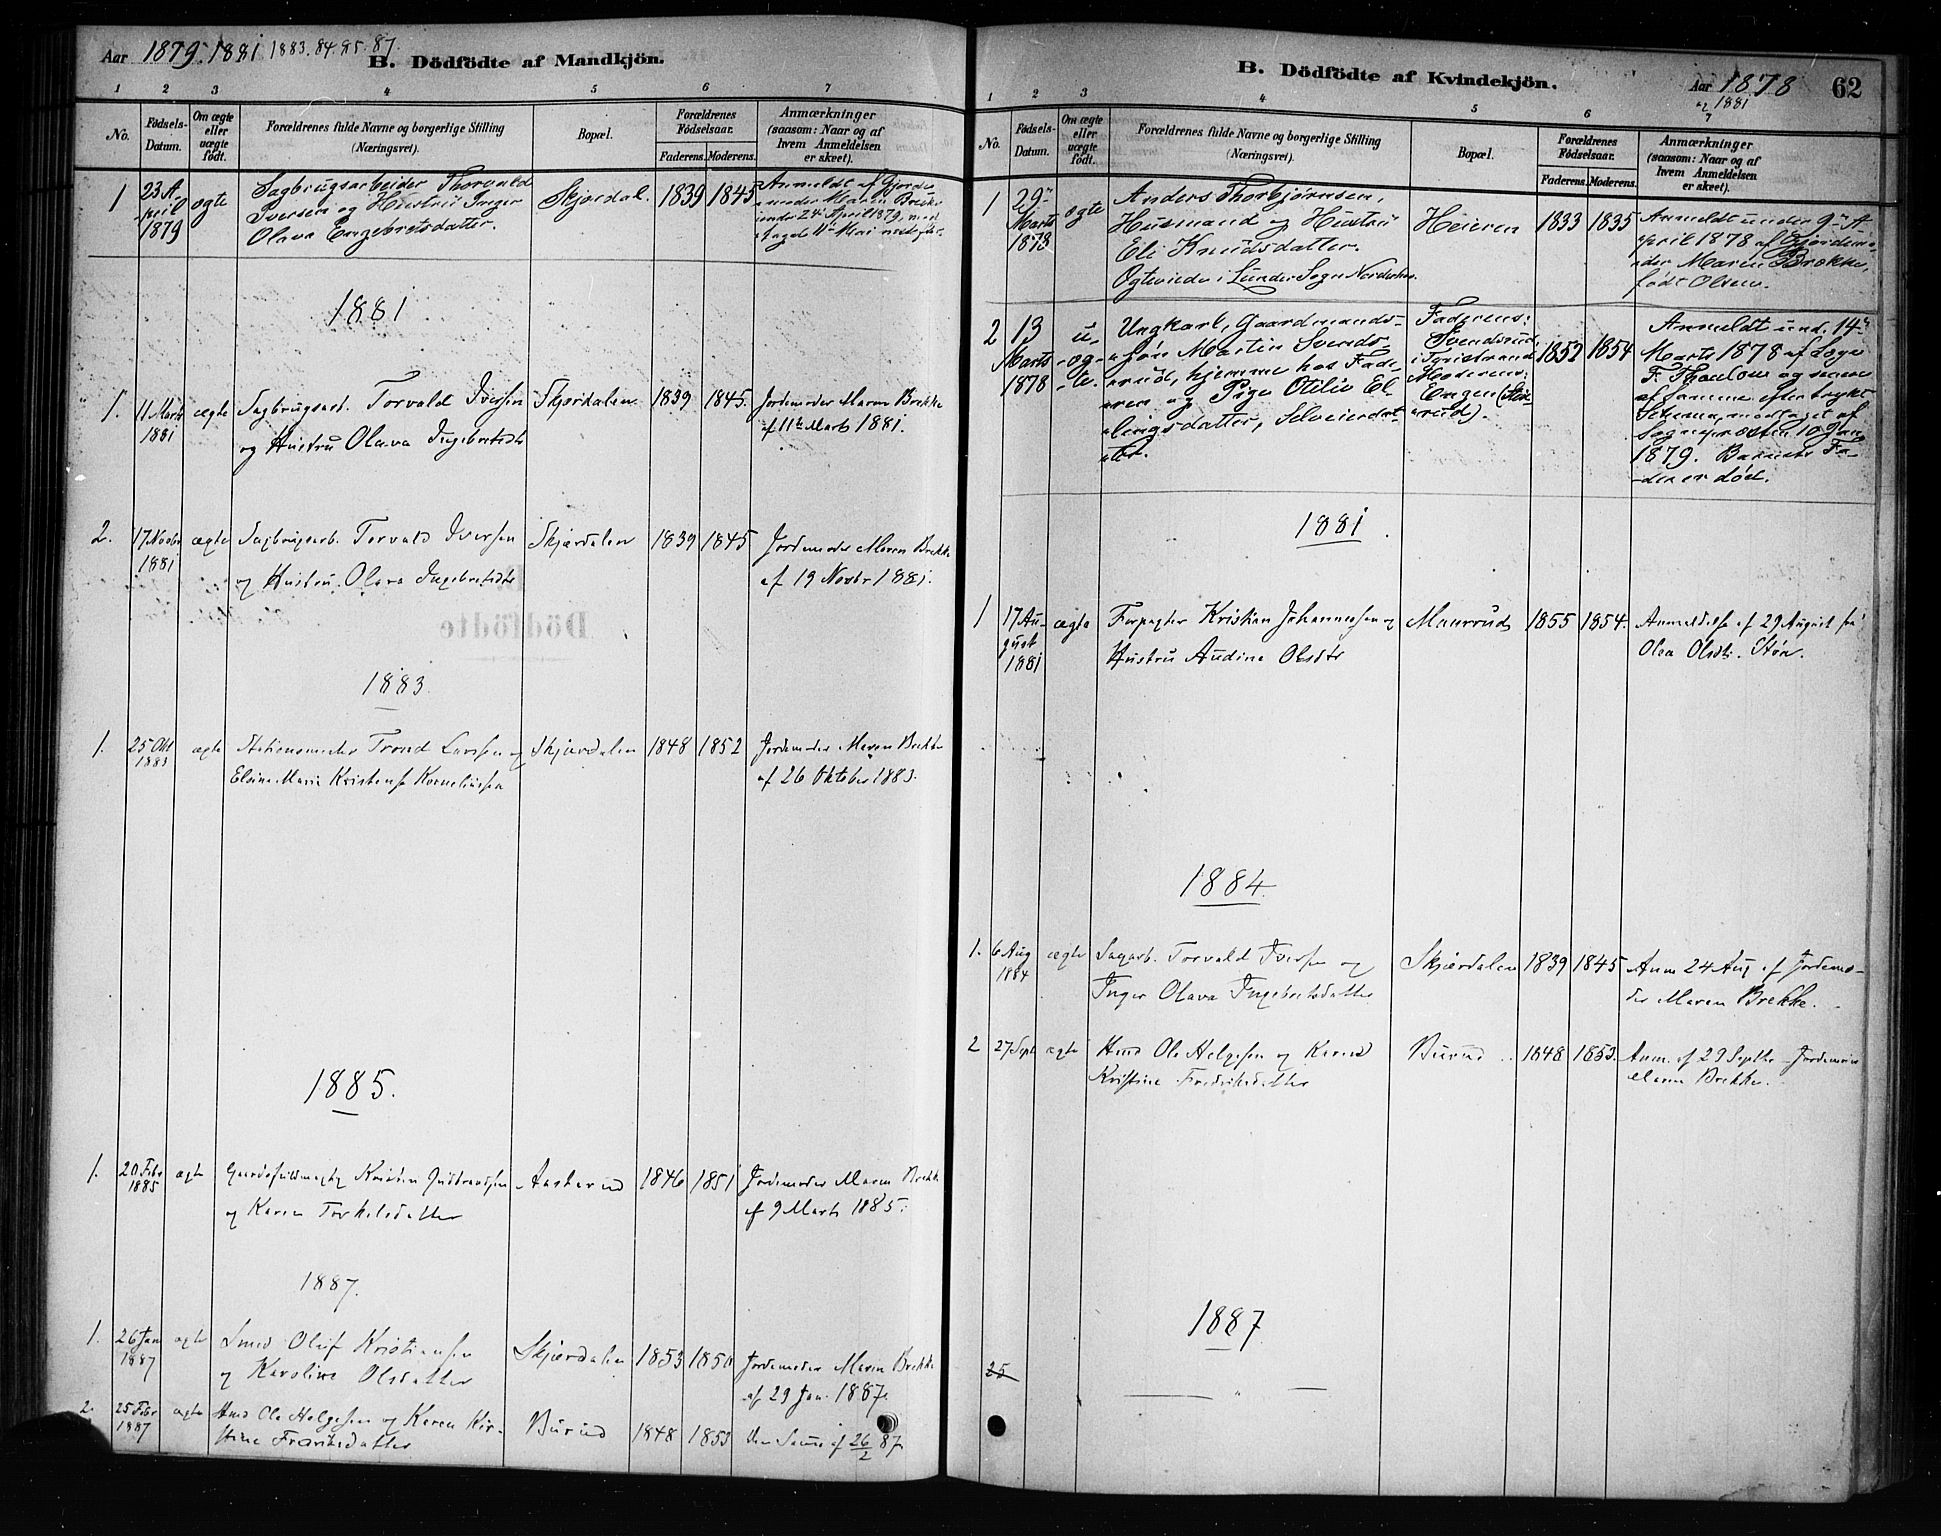 Aar 1879. 1881 1883. 84. 85. 87.
B. Dödfödte af Mandkjön.
1 2 3 4 5 6 7
No.
Födsels-
Datum.
Om ægte
eller
uægte
født.
Forældrenes fulde Navne og borgerlige Stilling
(Næringsvei).
Bopæl.
Forældrenes
Fødselsaar.
Faderens. Moderens.
Anmærkninger
(saasom: Naar og af
hvem Anmeldelsen
er skeet).
1 23 A-
pril
1879
ægte
Sagbrugsarbeider Thorvald
Iversen og Hustru Inger
Olava Engebretsdatter.
Skjørdal. 1839 1845
Anmeldt af Gjorde-
moder Maren Brekke
under 24 April 1879, med
1881
1. 11 Marts
1881
ægte
Sagbrugsarb. Torvald Iversen
og Hustru Olava Ingebretsdtr
Skjørdalen 1839 1845.
Jordemoder Maren Brekke
af 11te Marts 1881.
2. 17 Novbr
1881
ægte
Sagbrugsarb. Torvald Iversen
og Hustru Olava Ingebretsdtr
Skjærdalen 1839 1845
Jordemoder Maren Brekke
af 19 Novbr 1881.
1883.
1. 25 Okt
1883
ægte
Stationsmester Trond Larsen og
Elsine Marie Kristense Korneliussen
Skjærdalen 1848 1852
Jordemoder Maren Brekke
af 26 Oktober 1883.
1885.
1. 20 Febr
1885
ægte
Gaardsfuldmægtig Kristen Gudbrandsen
og Karen Torkelsdatter
Aasterud 1846 1851
Jordemoder Maren Brekke
af 9 Marts 1885.
1887.
1. 26 Jan
1887
ægte
Smed Oluf Kristiansen
og Karoline Olsdatter
Skjærdalen 1853 1850
Jordemoder Maren Brekke
af 29 Jan. 1887.
2. 25 Febr
1887
ægte
Hmd Ole Helgesen og Karen Kir-
stine Frediksdatter
Burud 1848 1853
den Samme af 26/2 87.
B. Dödfödte af Kvindekjön.
Aar 1878
og 1881
62
1 2 3 4 5 6 7
No.
Födsels-
Datum.
Om ægte
eller
uægte
født.
Forældrenes fulde Navne og borgerlige Stilling
(Næringsvei).
Bopæl.
Forældrenes
Fødselsaar.
Faderens. Moderens.
Anmærkninger
(saasom: Naar og af
hvem Anmeldelsen
er skeet).
1 29
Marts
1878
ægte
Anders Thorbjørnsen,
Husmand og Hustru
Eli Knudsdatter.
Ægteviede i Lunder Sogn Norderhov
Heieren 1833 1835
Anmeldt under 9de A-
pril 1878 af Gjordemo-
der Maren Brække,
født Olsen.
2 13
Marts
1878
u-
æg-
te.
Ungkarl, Gaardmands-
søn Martin Svends-
rud, hjemme hos Fade-
ren og Pige Otilie El-
lingsdatter, Selveierdat-
ter.
Faderens:
Svendsrud
i Tyristrand
Moderens:
Engen
1852 1854
Anmeldt und. 14de
Marts 1878 af Læge
F. Thaulow og senere
af samme efter trykt
Schema, modtaget af
Sognepræsten 10 Jan.
1879. Barnets Fa-
der er død.
1881.
1 17 Au-
gust
1881
ægte
Forpagter Kristian Johannessen og
Hustru Audine Olsdtr
Maurrud 1855 1854.
Anmeldelse af 29 August fra
Olea Olsdtr. Støn.
1884.
1. 6 Aug
1884
ægte
Sagarb. Torvald Iversen og
Inger Olava Ingebretsdatter
Skjærdalen 1839 1845
Anm 24 Aug af Jordemo-
der Maren Brekke.
2 27 Sept ægte
Hmd Ole Helgesen og Karen
Kristine Fredriksdatter
Burud 1848 1853.
Anm. af 29 Septbr Jordemoder
Maren Brekke.
1887
25